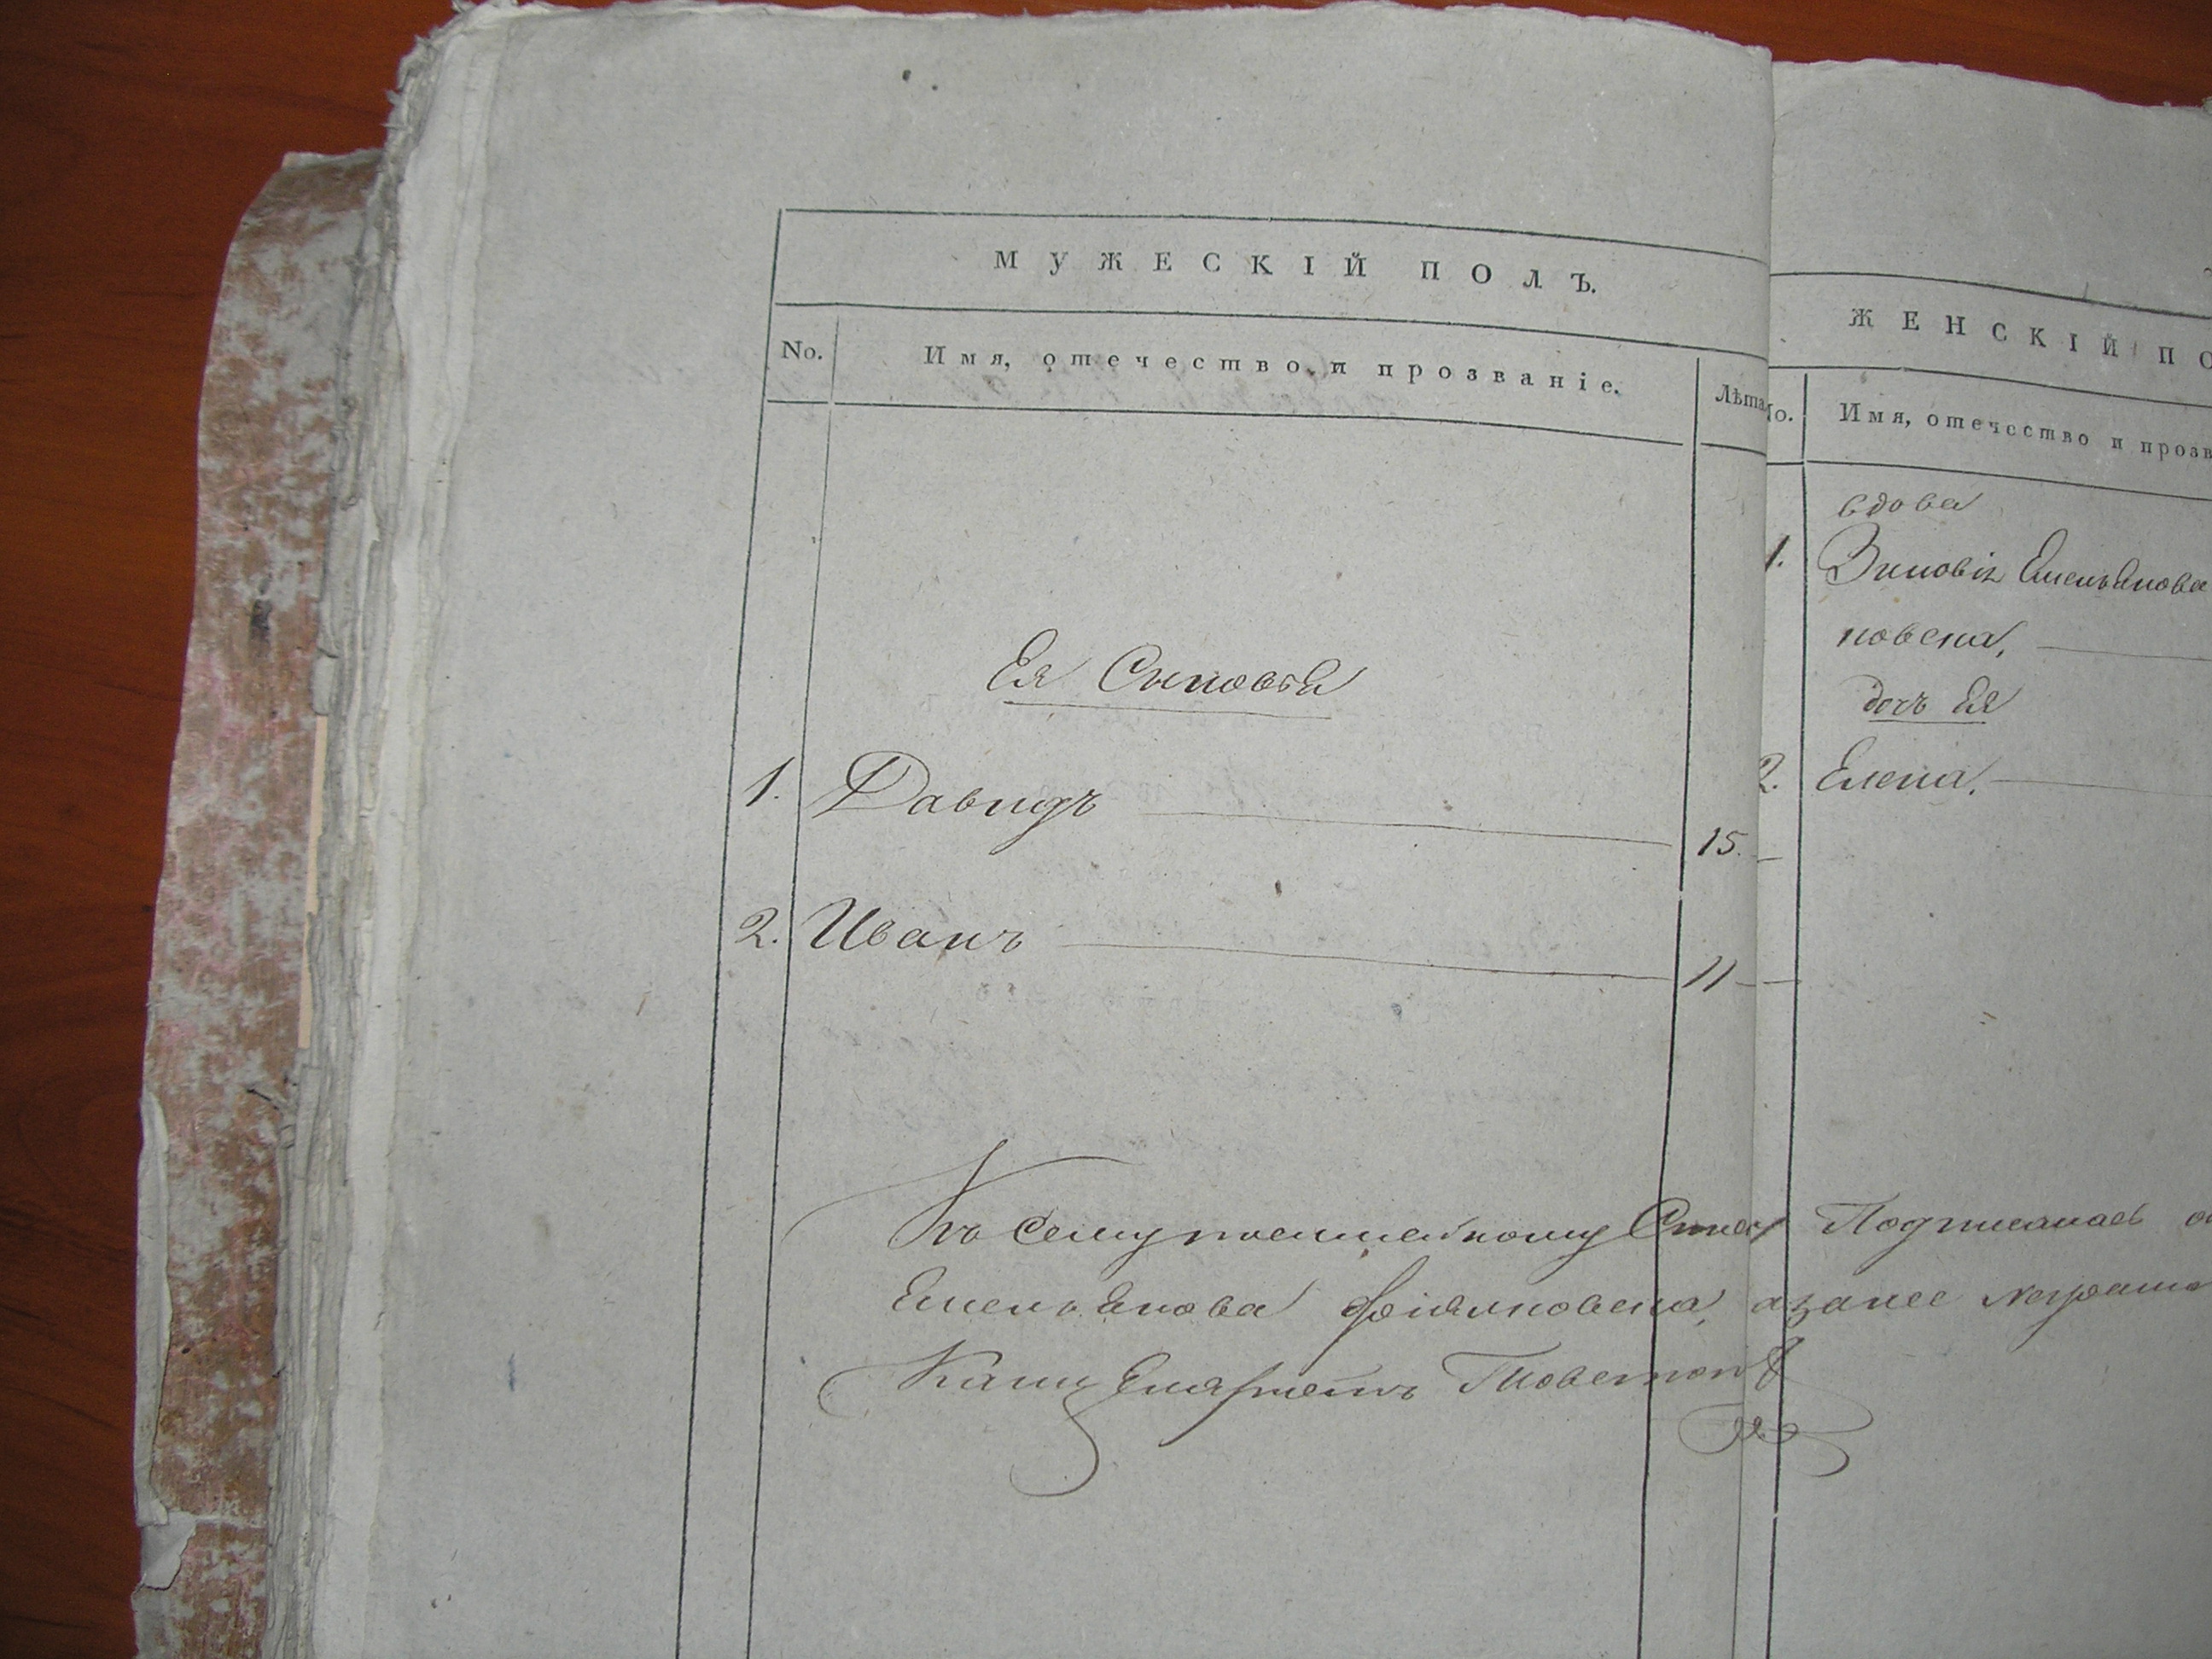 МУЖЕСКІЙ ПОЛЪ.
No. Имя, отечество и прозваніе. Лѣта
Ея Сыновья
1. Давидъ 15.
2. Иванъ 11
ЖЕНСКІЙ ПО
No. Имя, отечество и прозв
вдова
1. Зиновія Емельянова
новена,
дочь Ея
2. Елена,
Къ сему посемейному Списку Подписалась
Емельянова азанее неграмо